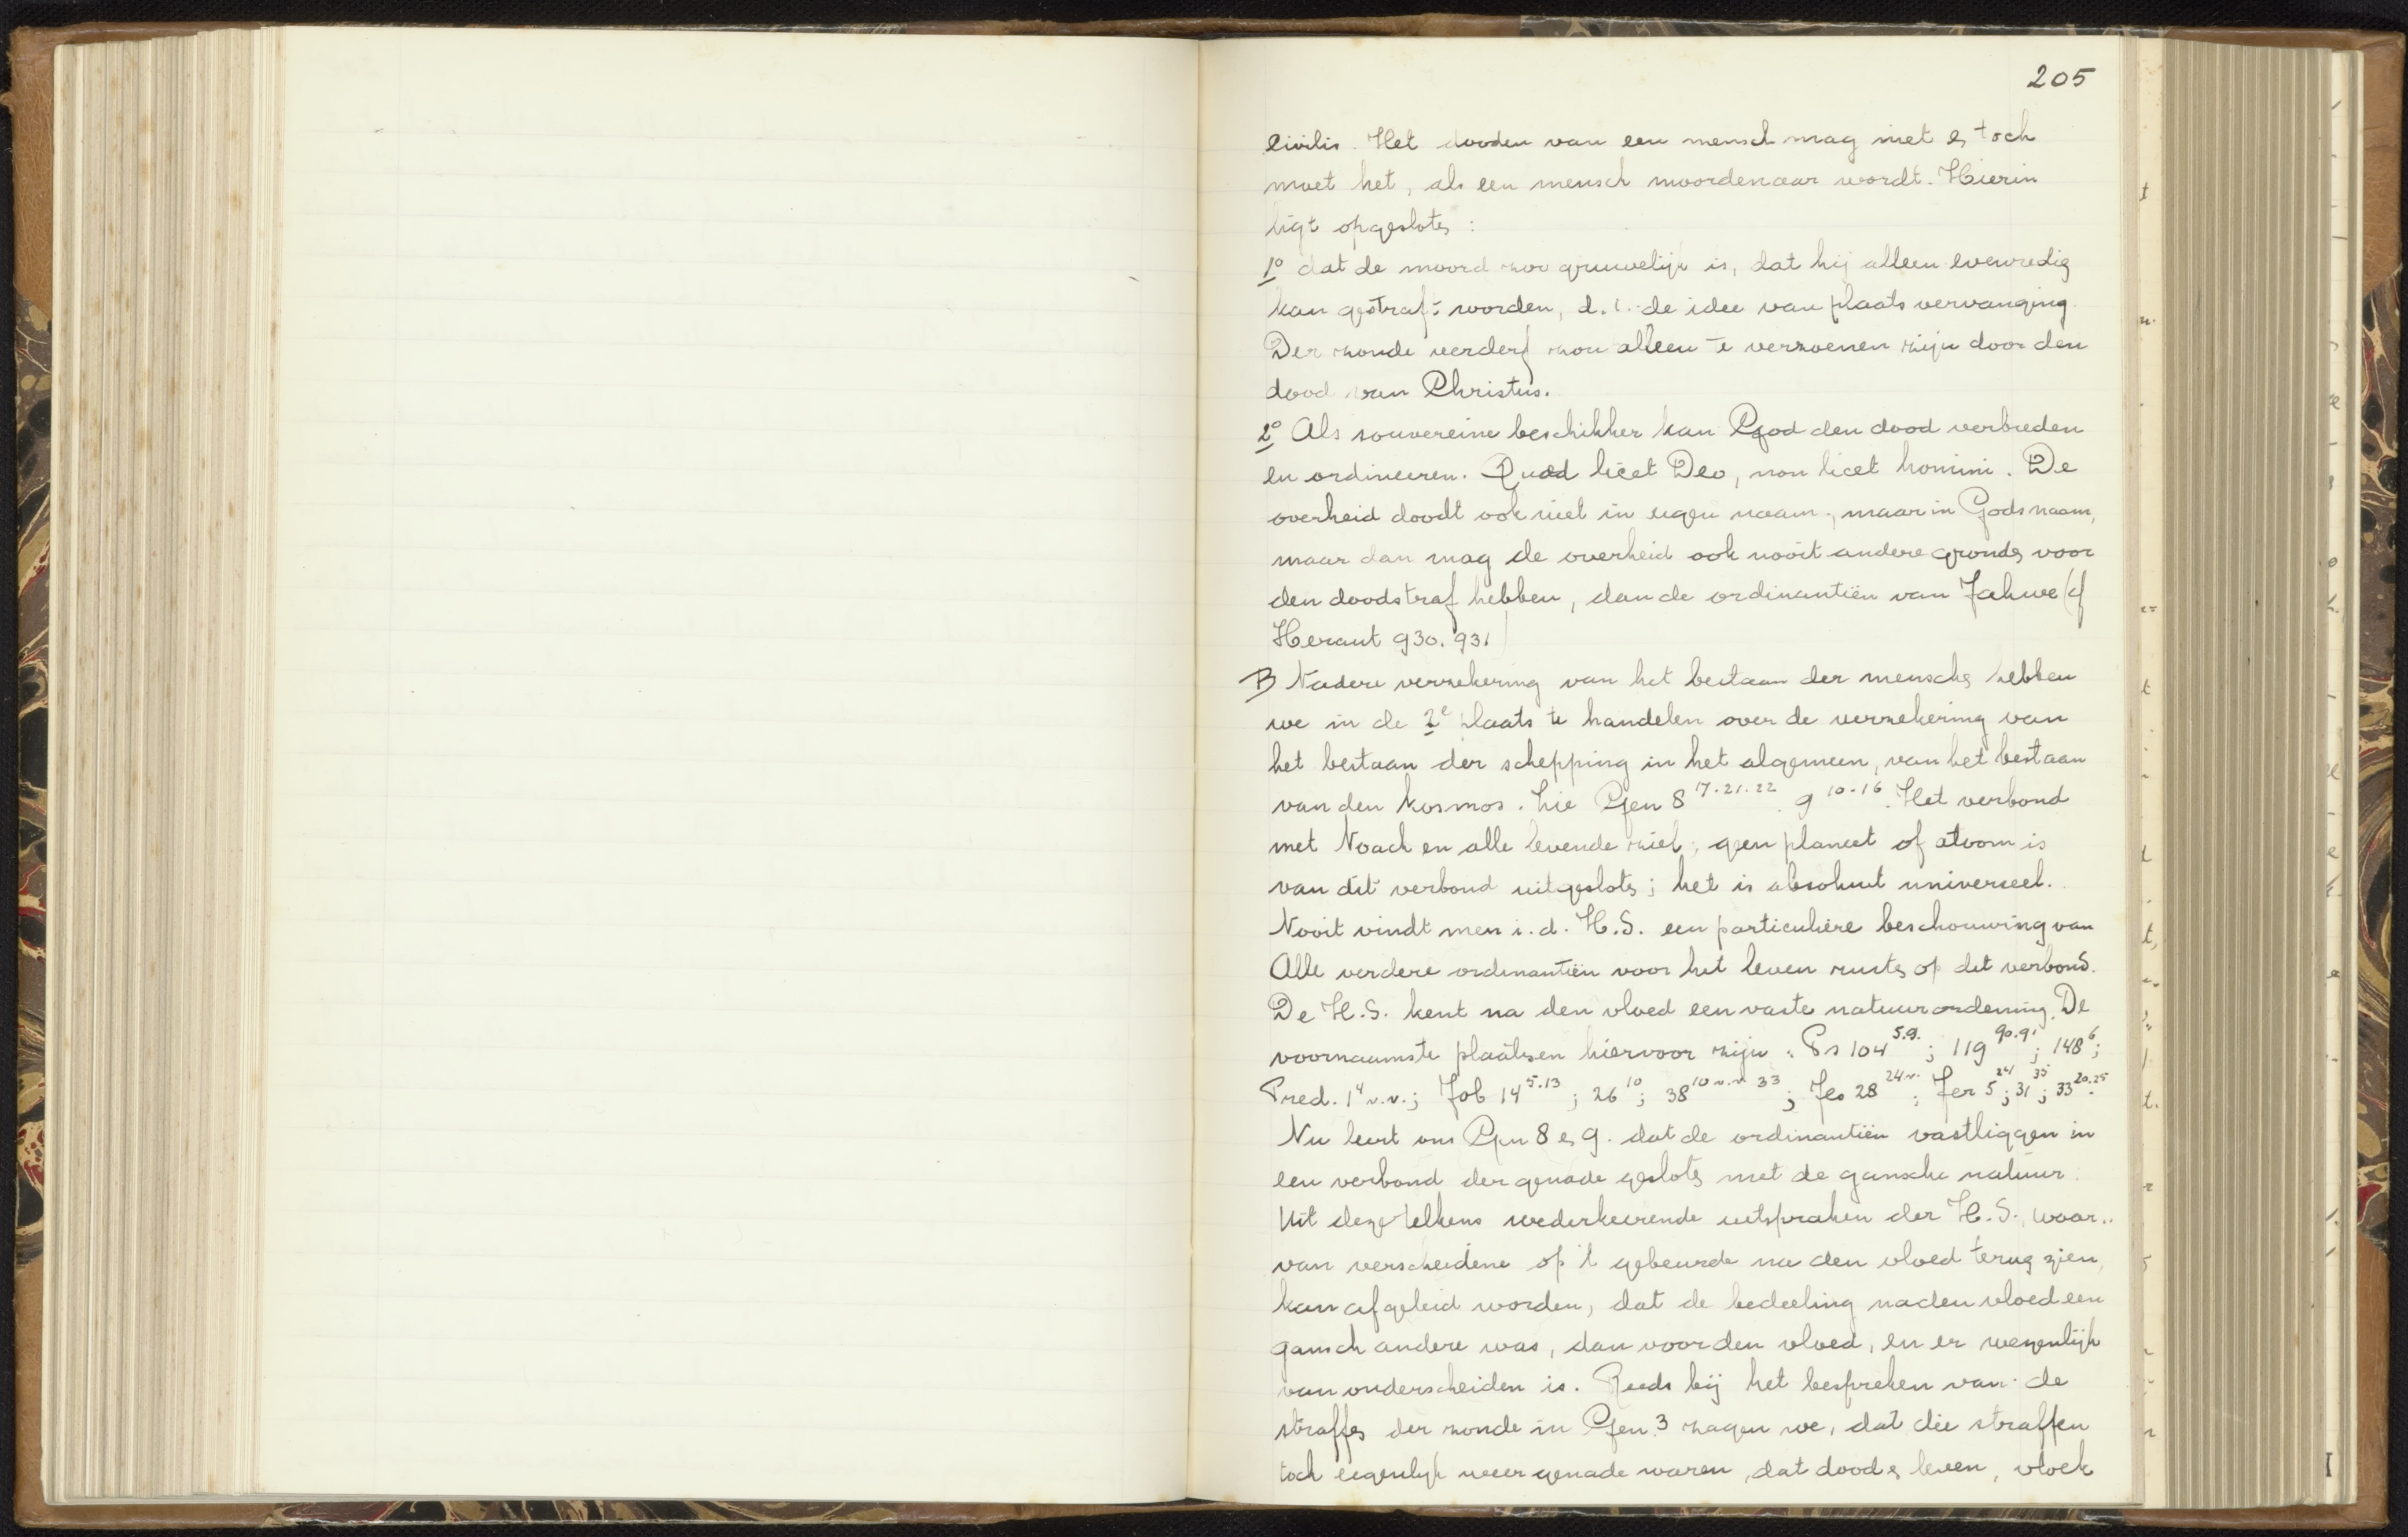 205
civilis. Het dooden van een mensch mag niet en toch
moet het, als een mensch moordenaar wordt. Hierin
ligt opgesloten:
1° dat de moord zoo gruwelijk is, dat hij alleen evenredig
kan gestraft worden, d.i. de idee van plaatsvervanging
Der zonde verderf zou alleen te verzoenen zijn door den
dood van Christus.
2° Als souvereine beschikker kan God den dood verbieden
en ordineeren. Quod licet Deo, non licet homini. De
overheid doodt ook niet in eigen naam, maar in Gods naam,
maar dan mag de overheid ook nooit andere gronden voor
den doodstraf hebben, dan de ordinantiën van Jahwe (cf
Heraut 930. 931)
B Nadere verzekering van het bestaan der menschen hebben
we in de 2e plaats te handelen over de verzekering van
het bestaan der schepping in het algemeen, van het bestaan
van den kosmos. Zie Gen 8 17.21.22. 9 10-16. Het verbond
met Noach en alle levende ziel; geen planeet of atoom is
van dit verbond uitgesloten; het is absoluut universeel.
Nooit vindt men i.d. H.S. een particuliere beschouwing van
Alle verdere ordinantiën voor het leven rusten op dit verbond.
De H.S. kent na den vloed een vaste natuurordening. De
voornaamste plaatsen hiervoor zijn: Ps 104 5.9.; 119 90.91; 148 6;
Pred. 1 4 v.v.; Job 14 5.13; 26 10; 38 10 v.v. 33; Jes 28 24 v.; Jer 5 24; 31 35; 33 20.25.
Nu leert ons Gen 8 en 9. dat de ordinantiën vastliggen in
een verbond der genade gesloten met de gansche natuur.
Uit deze telkens wederkeerende uitspraken der H.S., waar..
van verscheidene op 't gebeurde na den vloed terug zien,
kan afgeleid worden, dat de bedeeling na den vloed een
gansch andere was, dan voor den vloed, en er wezenlijk
van onderscheiden is. Reeds bij het bespreken van de
straffen der zonde in Gen. 3 zagen we, dat die straffen
toch eigenlijk weer genade waren, dat dood en leven, vloek